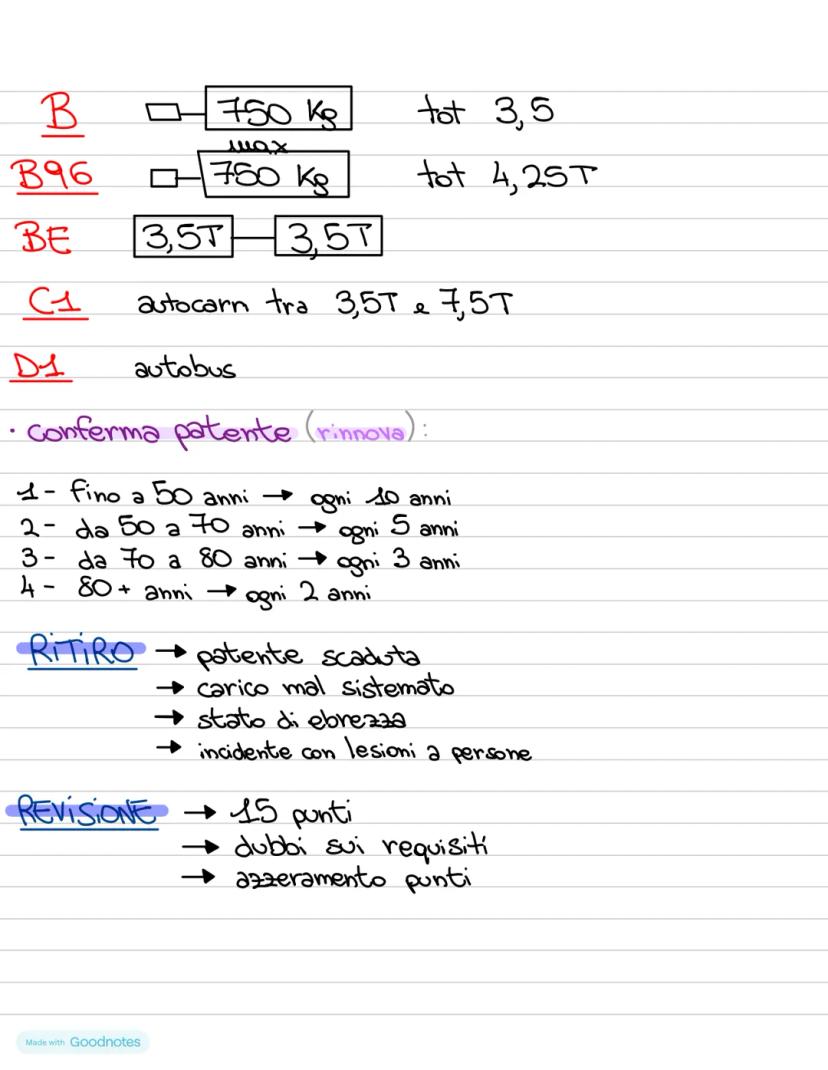 B 750 Kg tot 3,5
max
B96 750 Kg tot 4,25T
BE 3,5T 3,5T
C1 autocarri tra 3,5T e 7,5T
D1 autobus
· conferma patente (rinnova):
1 - fino a 50 anni → ogni 10 anni
2 - da 50 a 70 anni → ogni 5 anni
3 - da 70 a 80 anni → ogni 3 anni
4 - 80 + anni → ogni 2 anni
RiTiRO → patente scaduta
→ carico mal sistemato
→ stato di ebrezza
→ incidente con lesioni a persone
REViSiONE → 15 punti
→ dubbi sui requisiti
→ azzeramento punti
Made with Goodnotes